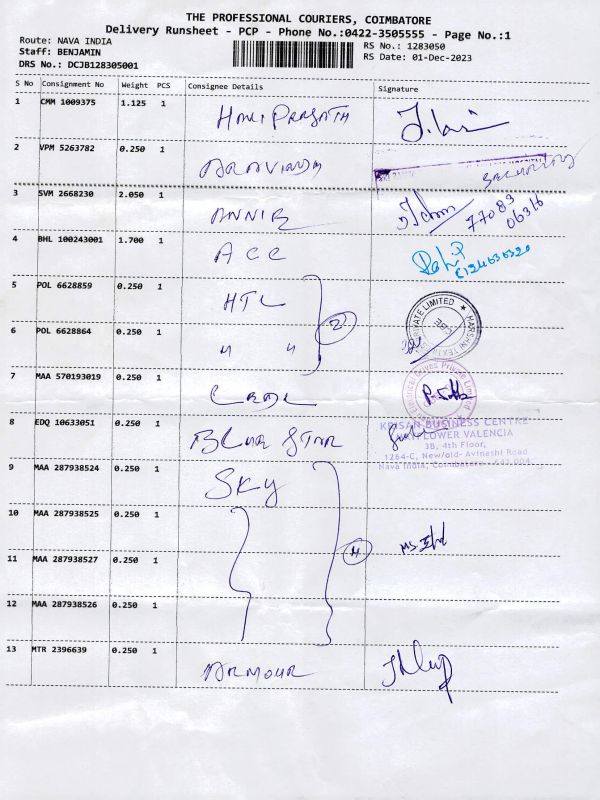 THE PROFESSIONAL COURIERS, COIMBATORE
Delivery Runsheet - PCP - Phone No.:0422-3505555 - Page No.:1
Route: NAVA INDIA
Staff: BENJAMIN
DRS No.: DCJB128305001
RS No.: 1283050
RS Date: 01-Dec-2023
S No Consignment No Weight PCS Consignee Details Signature
1 CMM 1009375 1.125 1 HARI PRASATH
2 VPM 5263782 0.250 1 ARAVINDH SECURITY
3 SVM 2668230 2.050 1 ANNIE 77083 06316
4 BHL 100243001 1.700 1 ACC
5 POL 6628859 0.250 1 HTL
2
PRIVATE LIMITED
6 POL 6628864 0.250 1 " "
7 MAA 570193019 0.250 1
8 EDQ 10633051 0.250 1 BLUE STAR
KRISAN BUSINESS CENTRE
MAYFLOWER VALENCIA
3B, 4th Floor,
1264-C, New/old- Avinashi Road
Nava India, Coimbatore - 641 004
9 MAA 287938524 0.250 1 SKY
10 MAA 287938525 0.250 1
4
11 MAA 287938527 0.250 1
12 MAA 287938526 0.250 1
13 MTR 2396639 0.250 1 ARMOUR